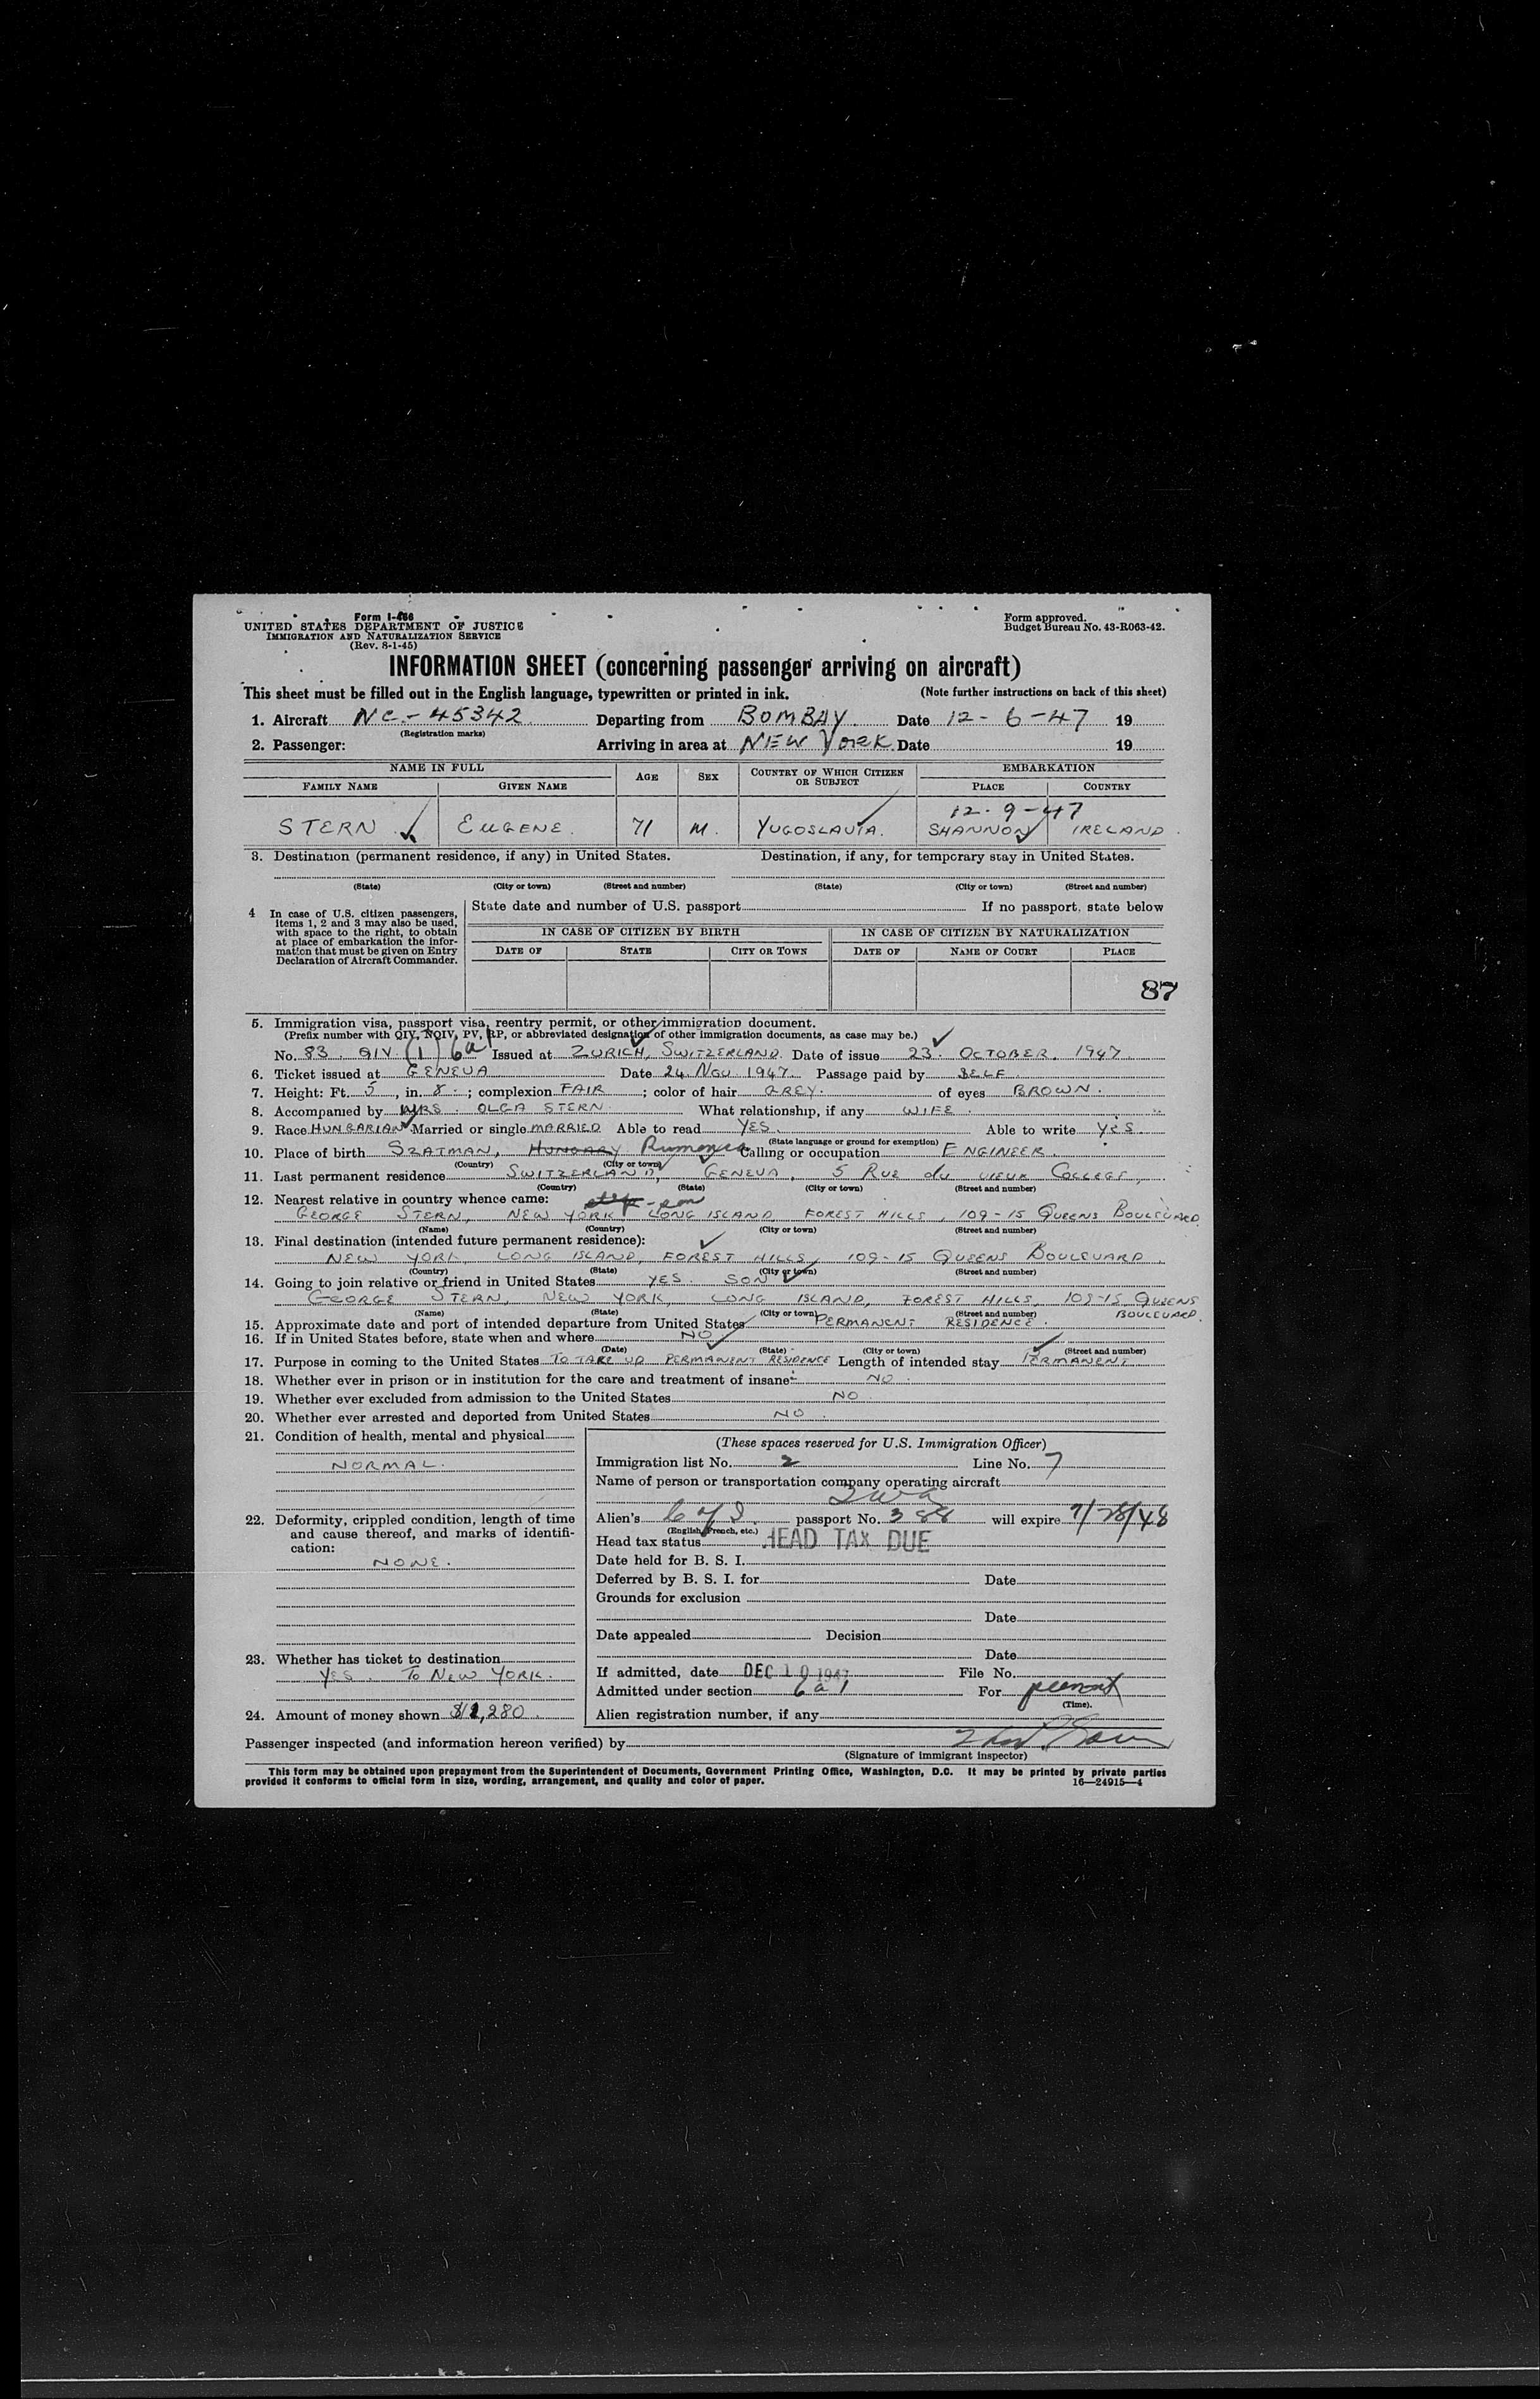 Form I-466
UNITED STATES DEPARTMENT OF JUSTICE
IMMIGRATION AND NATURALIZATION SERVICE
(Rev. 8-1-45)
Form approved.
Budget Bureau No. 43-R063-42.
INFORMATION SHEET (concerning passenger arriving on aircraft)
This sheet must be filled out in the English language, typewritten or printed in ink. (Note further instructions on back of this sheet)
1. Aircraft NC-45342 Departing from BOMBAY Date 12-6-47 19
(Registration marks)
2. Passenger: Arriving in area at NEW YORK Date 19
NAME IN FULL AGE SEX COUNTRY OF WHICH CITIZEN OR SUBJECT EMBARKATION
FAMILY NAME GIVEN NAME PLACE COUNTRY
12-9-47
STERN EUGENE. 71 M. YUGOSLAVIA. SHANNON IRELAND.
3. Destination (permanent residence, if any) in United States. Destination, if any, for temporary stay in United States.
(State) (City or town) (Street and number) (State) (City or town) (Street and number)
4 In case of U.S. citizen passengers, items 1, 2 and 3 may also be used, with space to the right, to obtain at place of embarkation the information that must be given on Entry Declaration of Aircraft Commander.
State date and number of U.S. passport If no passport, state below
IN CASE OF CITIZEN BY BIRTH IN CASE OF CITIZEN BY NATURALIZATION
DATE OF STATE CITY OR TOWN DATE OF NAME OF COURT PLACE
87
5. Immigration visa, passport visa, reentry permit, or other immigration document.
(Prefix number with QIV, NQIV, PV, RP, or abbreviated designation of other immigration documents, as case may be.)
No. 83. QIV (1) 6a Issued at ZURICH, SWITZERLAND. Date of issue 23. OCTOBER. 1947
6. Ticket issued at GENEVA Date 24. NOV 1947. Passage paid by SELF
7. Height: Ft. 5, in. 8.; complexion FAIR; color of hair GREY. of eyes BROWN.
8. Accompanied by MRS. OLGA STERN What relationship, if any WIFE.
9. Race HUNGARIAN Married or single MARRIED Able to read YES. Able to write YES.
(State language or ground for exemption)
10. Place of birth SZATMAN, HUNGARY Rumania Calling or occupation ENGINEER.
(Country) (City or town)
11. Last permanent residence SWITZERLAND, GENEVA, 5 RUE du VIEUX COLLEGE,
(Country) (State) (City or town) (Street and number)
12. Nearest relative in country whence came: step-son
GEORGE STERN, NEW YORK LONG ISLAND, FOREST HILLS, 109-15 QUEENS BOULEVARD.
(Name) (Country) (City or town) (Street and number)
13. Final destination (intended future permanent residence):
NEW YORK, LONG ISLAND, FOREST HILLS, 109-15 QUEENS BOULEVARD.
(Country) (State) (City or town) (Street and number)
14. Going to join relative or friend in United States YES. SON
GEORGE STERN, NEW YORK, LONG ISLAND, FOREST HILLS, 109-15 QUEENS
BOULEVARD.
(Name) (State) (City or town) (Street and number)
15. Approximate date and port of intended departure from United States PERMANENT RESIDENCE.
16. If in United States before, state when and where NO
(Date) (State) (City or town) (Street and number)
17. Purpose in coming to the United States TO TAKE UP PERMANENT RESIDENCE Length of intended stay PERMANENT
18. Whether ever in prison or in institution for the care and treatment of insane NO.
19. Whether ever excluded from admission to the United States NO
20. Whether ever arrested and deported from United States NO.
21. Condition of health, mental and physical
NORMAL.
22. Deformity, crippled condition, length of time and cause thereof, and marks of identification:
NONE.
23. Whether has ticket to destination
YES. TO NEW YORK.
24. Amount of money shown $11,280.
(These spaces reserved for U.S. Immigration Officer)
Immigration list No. 2 Line No. 7
Name of person or transportation company operating aircraft
TWA
Alien's C of I. passport No. 388 will expire 7/28/48
(English, French, etc.)
Head tax status HEAD TAX DUE
Date held for B. S. I.
Deferred by B. S. I. for Date
Grounds for exclusion
Date
Date appealed Decision
Date
If admitted, date DEC 10 1947 File No.
Admitted under section 6a1 For permanent
(Time).
Alien registration number, if any
Passenger inspected (and information hereon verified) by
(Signature of immigrant inspector)
This form may be obtained upon prepayment from the Superintendent of Documents, Government Printing Office, Washington, D.C. It may be printed by private parties
provided it conforms to official form in size, wording, arrangement, and quality and color of paper. 16—24915—4